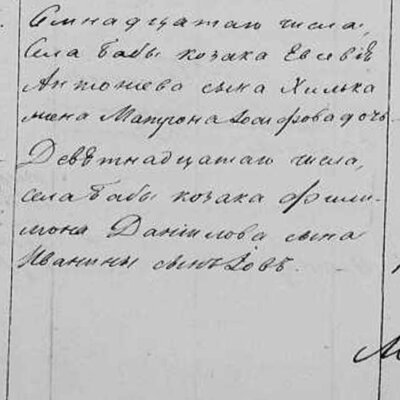 Семнадцатаго числа,
села Бабы козака Евсевія
Антоніева сына Хилька
жена Матрона Іосифова дочь
Девѣтнадцатаго числа,
села Бабы козака Фили-
мона Даніилова сына
Иванины сынъ Іовъ.